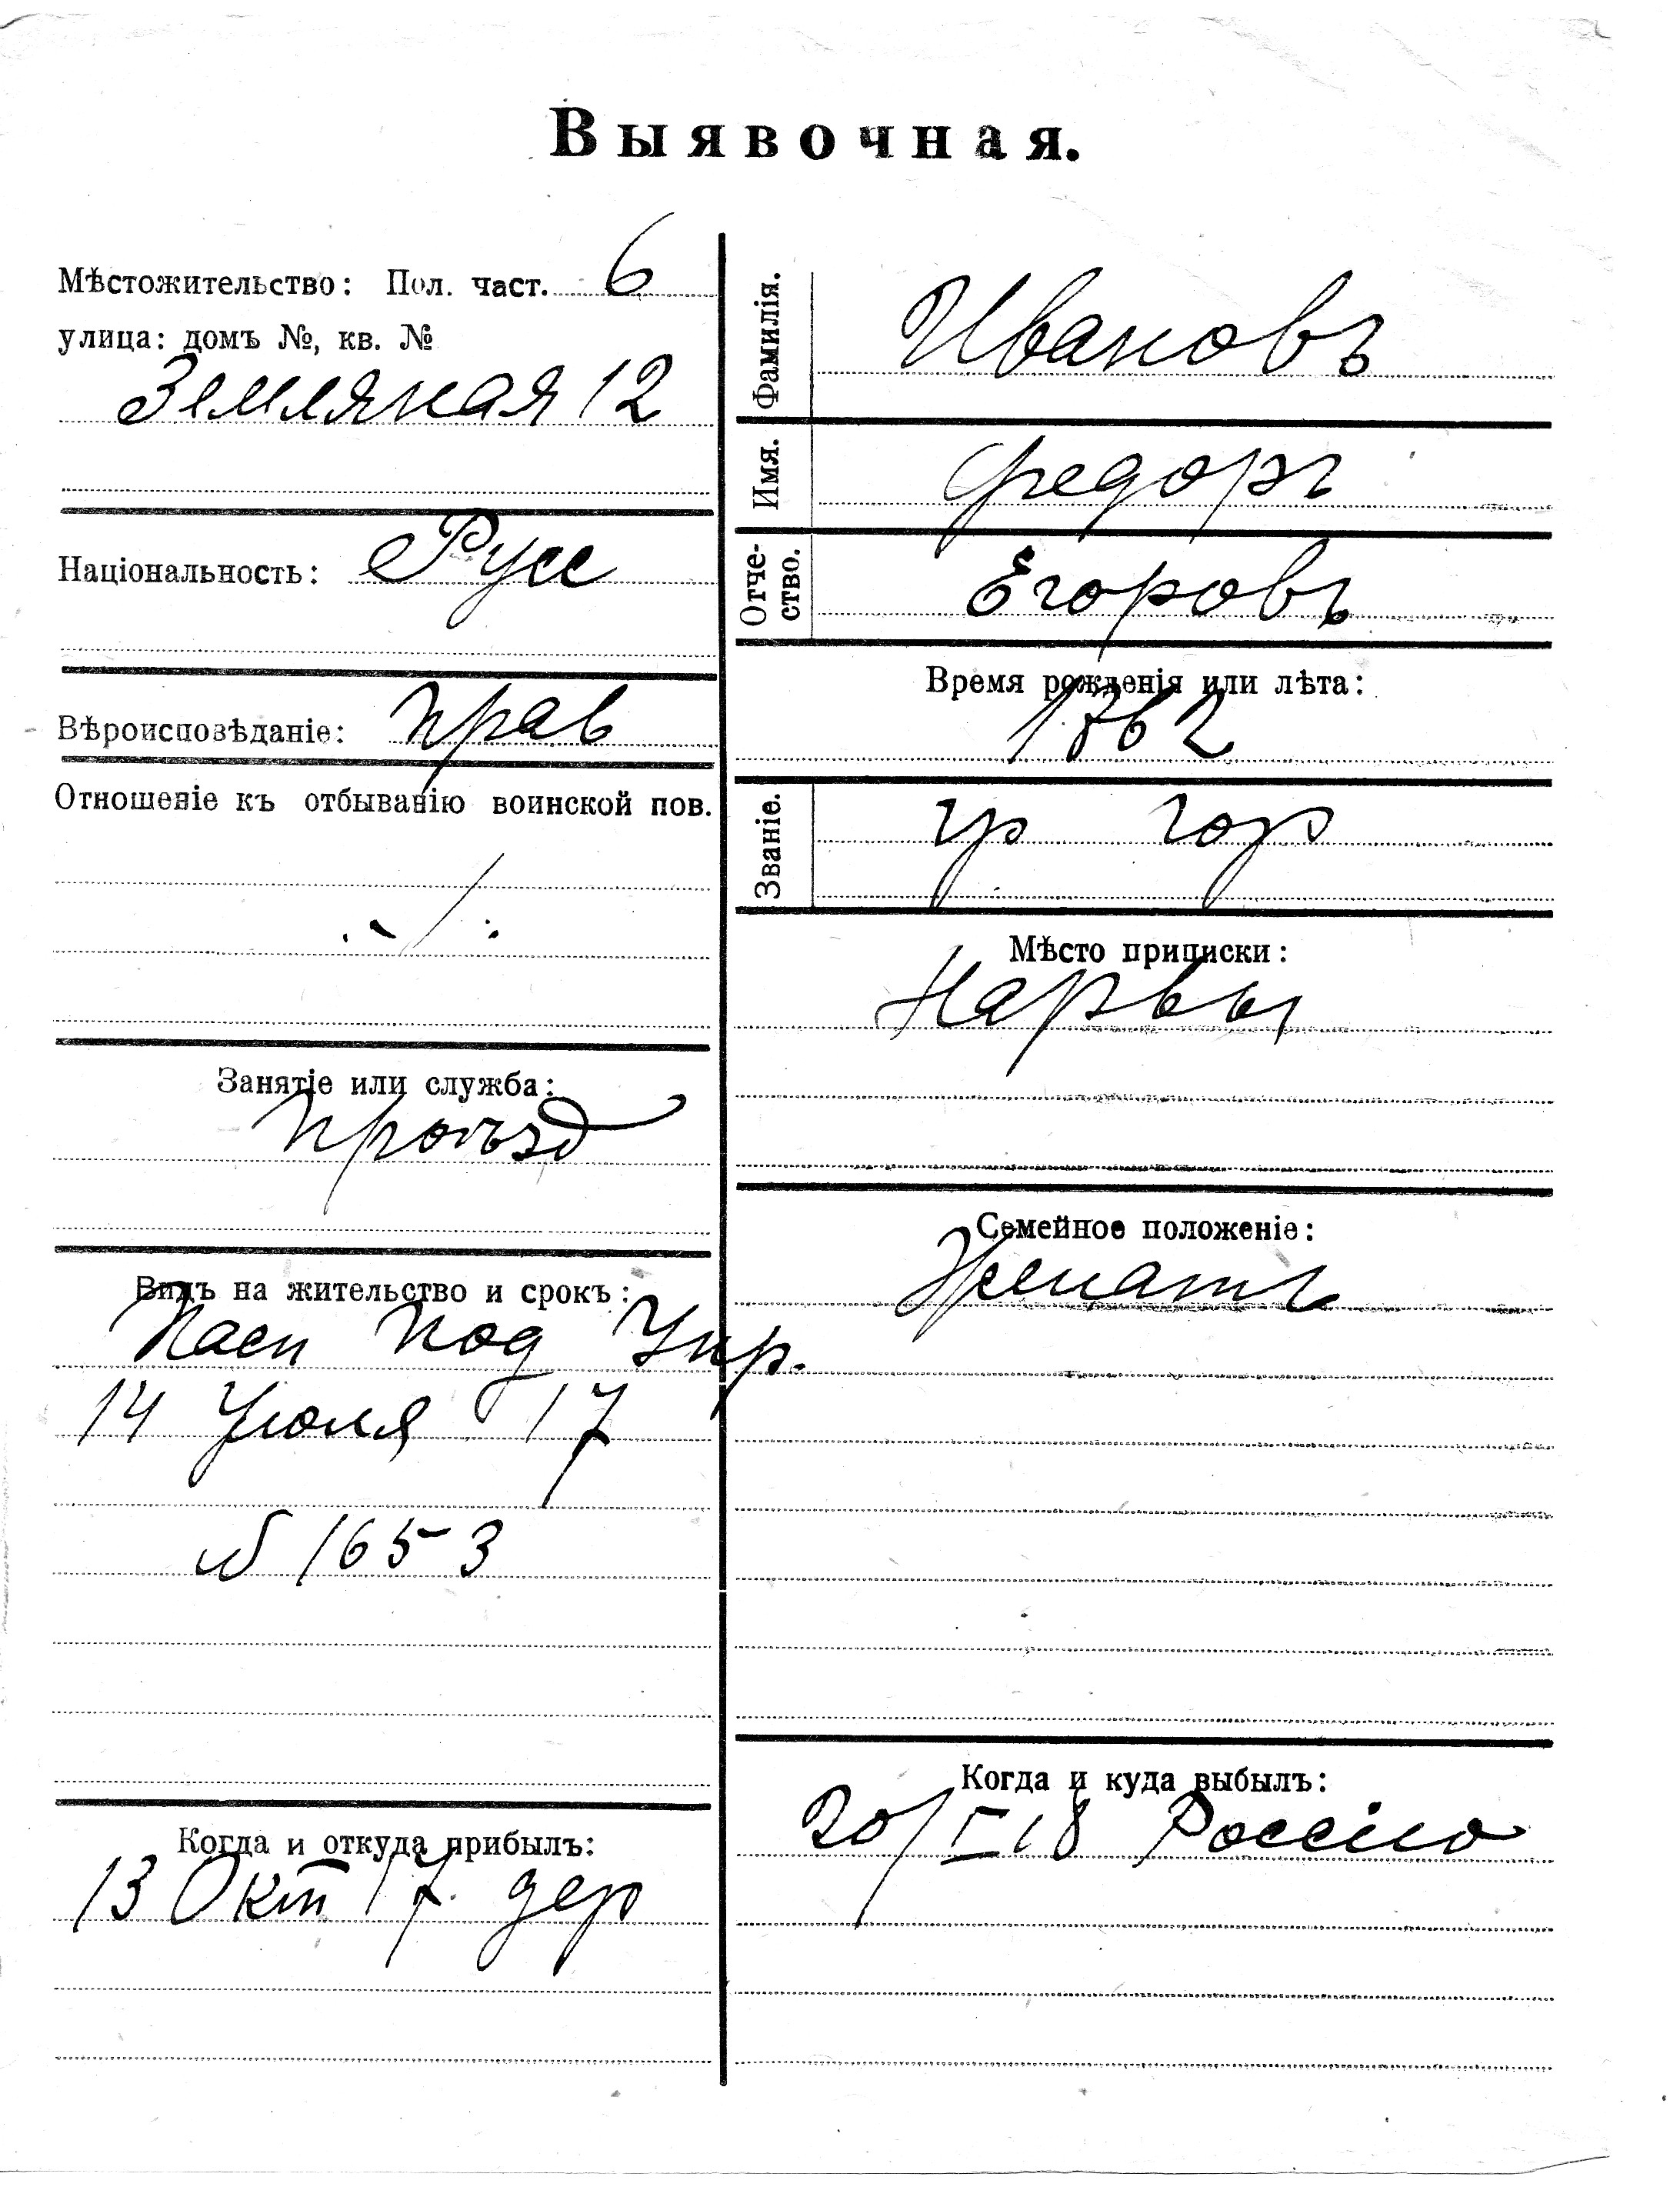 Выявочная.
Мѣстожительство: Пол. част. 6
улица: домъ №, кв. №
Земляная 12
Національность: Русс
Вѣроисповѣданіе: прав
Отношеніе къ отбыванію воинской пов.
Занятіе или служба:
проѣзд
Видъ на жительство и срокъ:
Пасп Под Упр.
14 Июля 17
№ 1653
Когда и откуда прибылъ:
13 Окт 17. дер
Фамилія. Ивановъ
Имя. Федоръ
Отче-
ство. Егоровъ
Время рожденія или лѣта:
1862
Званіе. гр гор
Мѣсто приписки:
Нарвы
Семейное положеніе:
Женатъ
Когда и куда выбылъ:
20/I 18 Россію